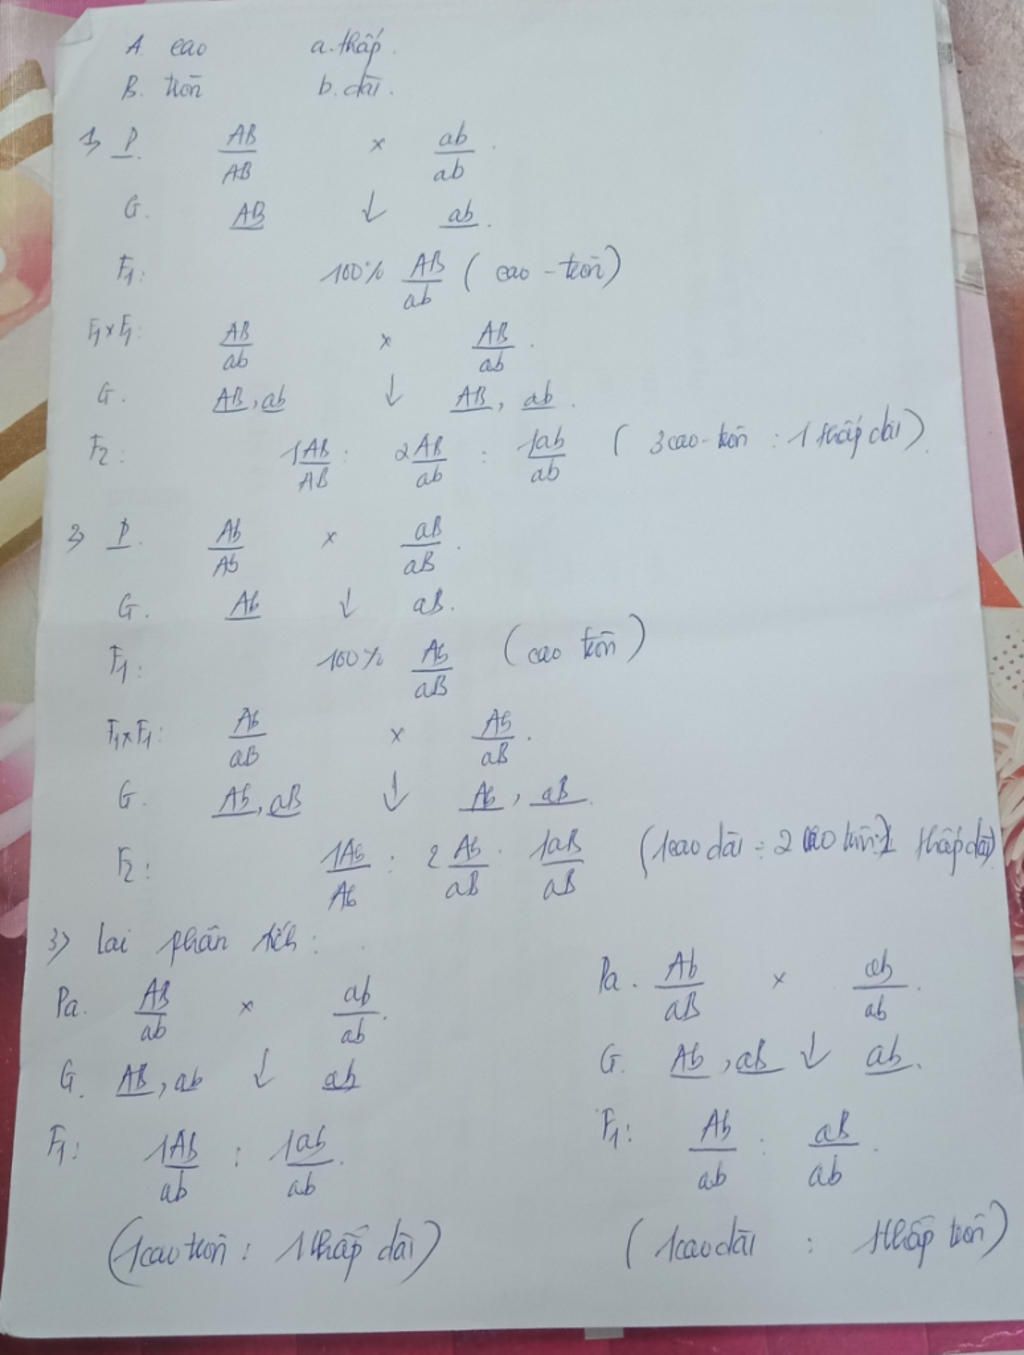 A. cao a. thấp.
B. tròn b. dài.
1) P. AB/AB × ab/ab.
G. AB ↓ ab.
F1: 100% AB/ab (cao - tròn)
F1×F1: AB/ab × AB/ab.
G. AB, ab ↓ AB, ab.
F2: 1AB/AB : 2AB/ab : 1ab/ab (3cao-tròn : 1 thấp dài)
2) P. Ab/Ab × aB/aB.
G. Ab ↓ aB.
F1: 100% Ab/aB (cao tròn)
F1×F1: Ab/aB × Ab/aB.
G. Ab, aB ↓ Ab, aB.
F2: 1Ab/Ab : 2Ab/aB : 1aB/aB (1cao dài : 2 cao tròn : 1 thấp dài)
3) Lai phân tích:
Pa. AB/ab × ab/ab.
G. AB, ab ↓ ab
F1: 1AB/ab : 1ab/ab.
(1cao tròn : 1 thấp dài)
Pa. Ab/aB × ab/ab.
G. Ab, aB ↓ ab.
F1: Ab/ab : aB/ab.
(1cao dài : 1thấp tròn)